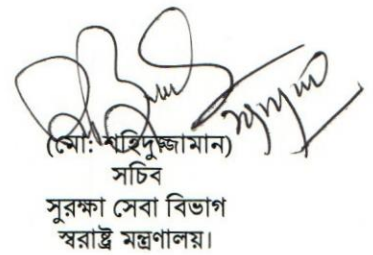 (মো: শহিদুজ্জামান)
সচিব
সুরক্ষা সেবা বিভাগ
স্বরাষ্ট্র মন্ত্রণালয়।